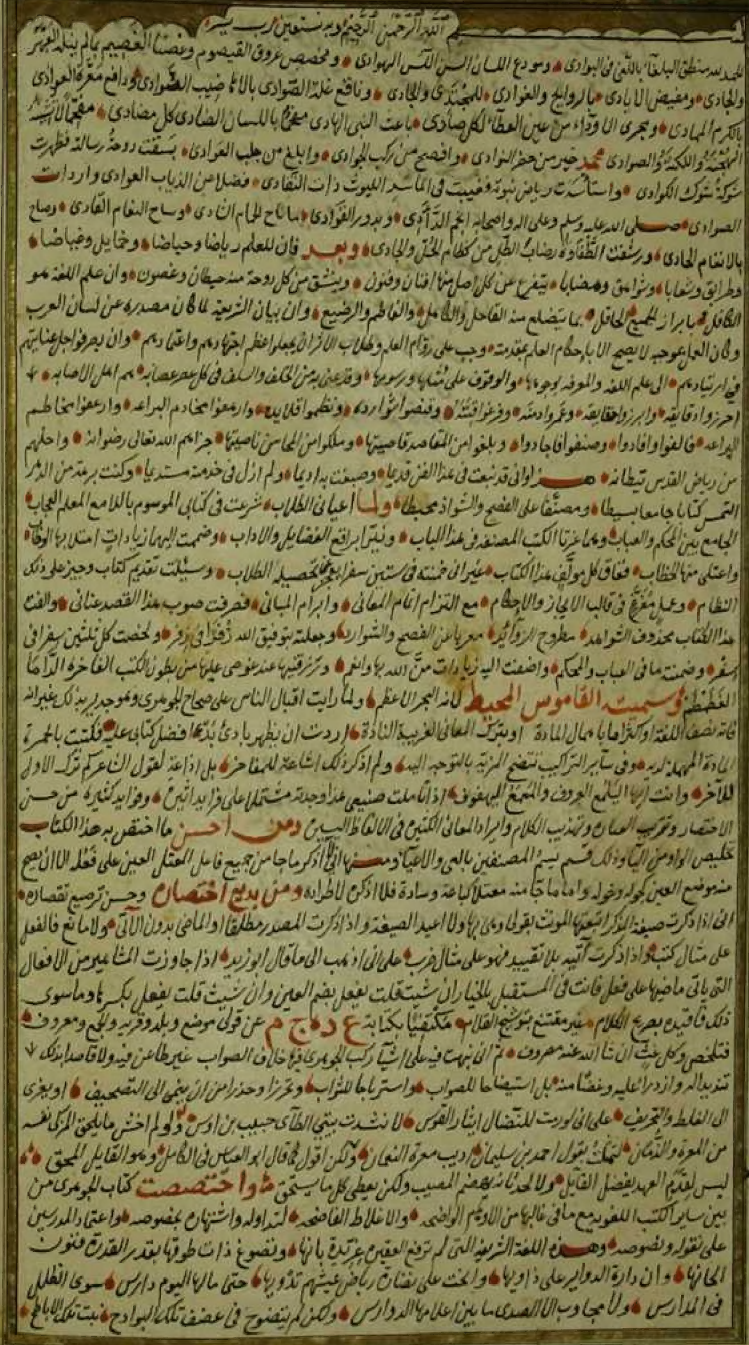 بسم الله الرحمن الرحيم وبه نستعين رب يسر
الحمد لله منطق البلغاء باللغى فى البوادى ومودع اللسان السن اللسن الهوادى ومخصص عروق القيصوم وغضا القصيم بما لم ينله العبهر
والجادى ومفيض الايادى بالروائح والغوادى للمجتدى والجادى وناقع غلة الصوادى بالاهاضيب الثوادى ودافع معرة العوادى
بالكرم الممادى ومجرى الاوداء من عين العطاء لكل صادى باعث النبى الهادى مفحما باللسان الضادى كل مضادى مفخما لا تشينه
الهجنة واللكنة والضوادى محمد خير من حضر النوادى وافصح من ركب الخوادى وابلغ من حلب العوادى بسقت دوحة رسالته فظهرت
شوكة الكوادى واستأسدت رياض نبوته فعيت فى المآسد الليوث العوادى
صلى الله عليه وسلم وعلى اله واصحابه نجوم الدآدى وبدور القوادى ما ناح الحمام الشادى وساح النعام القادى وصاح
بالانغام الحادى ورشفت الطفاوة رضاب الطل من كظام الجل والجادى وبعد فان للعلم رياضا وحياضا وخمائل وغياضا
وطرائق وشعابا وشواهق وهضابا يتفرع عن كل اصل منها افنان وفنون وينشق من كل دوحة منه خيطان وغصون وان علم اللغة هو
الكافل بابراز الجميع الحافل بما يتضلع منه القاحل والكاهل والفاطم والرضيع وان بيان الشريعة لما كان مصدره عن لسان العرب
وكان العمل بموجبه لا يصح الا باحكام العلم بمقدمته وجب على روام العلم وطلاب الاثر ان يجعلوا عظم اجتهادهم واعتمادهم وان يصرفوا جل عنايتهم
فى ارتيادهم الى علم اللغة والمعرفة بوجوهها والوقوف على مثلها ورسومها وقد عنى به من الخلف والسلف فى كل عصر عصابة هم اهل الاصابة
احرزوا دقائقه وابرزوا حقائقه وعمروا دمنه وفرعوا قننه وقنصوا شوارده ونظموا قلائده وارهفوا مخاذم البراعة وارعفوا مخاطم
اليراعة فالفوا وافادوا وصنفوا واجادوا وبلغوا من المقاصد قاصيتها وملكوا من المحاسن ناصيتها جزاهم الله تعالى رضوانه واحلهم
من رياض القدس ميطانه هذا وانى قد نبغت فى هذا الفن قديما وصبغت به اديما ولم ازل فى خدمته مستديما وكنت برهة من الدهر
التمس كتابا جامعا بسيطا ومصنفا على الفصح والشوارد محيطا ولما اعيانى الطلاب شرعت فى كتابى الموسوم باللامع المعلم العجاب
الجامع بين المحكم والعباب وهما غرتا الكتب المصنفة فى هذا الباب ونيرا براقع الفضل والاداب وضممت اليهما زيادات امتلا بها الوطاب
واعتلى منها الخطاب ففاق كل مؤلف هذا الكتاب غير انى خمنته فى ستين سفرا يعجز تحصيله الطلاب وسئلت تقديم كتاب وجيز على ذلك
النظام وعمل مفرغ فى قالب الايجاز والاحكام مع التزام اتمام المعانى وابرام المبانى فصرفت صوب هذا القصد عنانى والفت
هذا الكتاب محذوف الشواهد مطروح الزوائد معربا عن الفصح والشوارد وجعلت بتوفيق الله زفرا فى زفر ولخصت كل ثلثين سفرا فى
سفر وضمنته ما فى العباب والمحكم واضفت اليه زيادات من الله بها وانعم ورزقنيها عند غوصى عليها من بطون الكتب الفاخرة الدأماء
الغطمطم وسميته القاموس المحيط لانه البحر الاعظم ولما رايت اقبال الناس على صحاح الجوهرى وهو جدير بذلك غير انه
فاته نصف اللغة او اكثر اما باهمال المادة او بترك المعانى الغريبة النادة اردت ان يظهر بادئ بدء فضل كتابى عليه فكتبت بالحمرة
المادة المهملة لديه وفى سائر التراكيب تتضح المزية بالتوجه اليه ولم اذكر ذلك اشاعة للمفاخر بل اذاعة لقول الشاعر كم ترك الاول
للآخر وانت ايها اليلمع العروف والمعمع اليهفوف اذا تاملت صنيعى هذا وجدته مشتملا على فرائد اثيرة وفوائد كثيرة من حسن
الاختصار وتقريب العبارة وتهذيب الكلام وايراد المعانى الكثيرة فى الالفاظ اليسيرة ومن احسن ما اختص به هذا الكتاب
تخليص الواو من الياء وذلك قسم يسم المصنفين بالعى والاعياء ومنها انى لا اذكر ما جاء من جمع فاعل المعتل العين على فعلة الا ان يصح
منه موضع العين كجولة وخولة واما ما جاء منه معتلا كباعة وسادة فلا اذكره لاطراده ومن بديع اختصاره وحسن ترصيع تقصاره
انى اذا ذكرت صيغة المذكر اتبعتها المؤنث بقولى وهى بهاء ولا اعيد الصيغة واذا ذكرت المصدر مطلقا او الماضى بدون الآتى ولا مانع فالفعل
على مثال كتب واذا ذكرت آتيه بلا تقييد فهو على مثال ضرب على انى اذهب الى ما قال ابو زيد اذا جاوزت المشاهير من الافعال
التى ياتى ماضيها على فعل فانت فى المستقبل بالخيار ان شئت قلت يفعل بضم العين وان شئت قلت يفعل بكسرها وما سوى
ذلك فاقيده بصريح الكلام غير مقتنع بتوشيح القلام مكتفيا بكتابة ع د ة ج م عن قولى موضع وبلد وقرية والجمع ومعروف
فتلخص وكل غث ان شاء الله عنه مصروف ثم انى نبهت فيه على اشياء ركب الجوهرى فيها خلاف الصواب غير طاعن فيه ولا قاصد بذلك
تنديدا له وازراء عليه وغضا منه بل استيضاحا للصواب واسترباحا للثواب وتحرزا وحذرا من ان ينمى الى التصحيف او يعزى
الى الغلط والتحريف على انى لو رمت للنضال ايتار القوس لانشدت بيتى الطائى حبيب بن اوس ولو لم اخش ما يلحق المزكى نفسه
من المعرة والدمان لتمثلت بقول احمد بن سليمان اديب معرة النعمان ولكن اقول كما قال ابو العباس فى الكامل وهو القائل المحق
ليس لقدم العهد يفضل القائل ولا لحدثانه يهتضم المصيب ولكن يعطى كل ما يستحق واختصصت كتاب الجوهرى من
بين سائر الكتب اللغوية مع ما فى غالبها من الاوهام الواضحة والاغلاط الفاضحة لتداوله واشتهاره بخصوصه واعتماد المدرسين
على نقوله ونصوصه وهذه اللغة الشريفة التى لم ترفع العقيرة غريدة بانها وتصوغ ذات طوقها بقدر القدرة فنون
الحانها وان دارت الدوائر على ذويها واخنت على نضارة رياض عيشهم تذويها حتى ما لها اليوم دارس سوى الطلل
فى المدارس ولا مجاوب الا الصدى ما بين اعلامها الدوارس ولكن لم يتصوح فى عصف تلك البوارح نبت تلك الاباطح